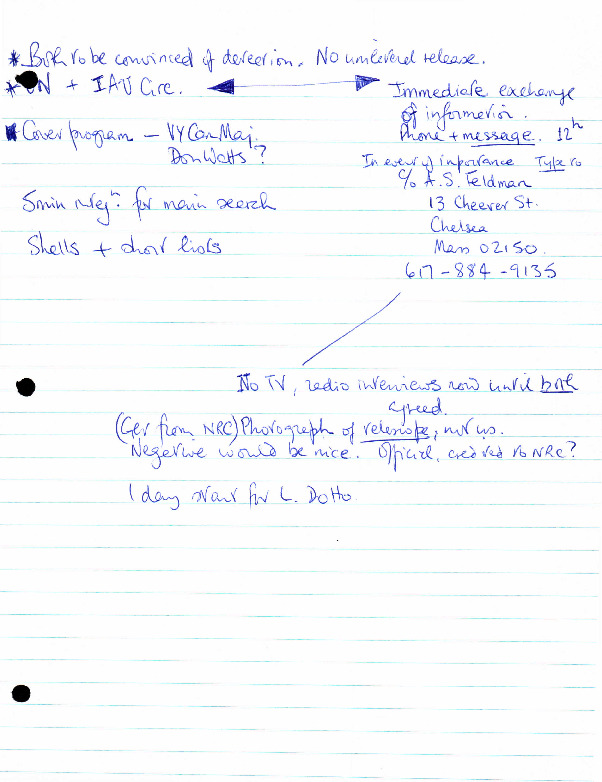 * Both to be convinced of detection. No unilateral release.
* UN + IAU Circ.
Immediate exchange
of information.
Phone + message. 12h
In event of importance Type to
c/o A.S. Feldman
13 Cheever St.
Chelsea
Mass 02150.
617-884-9135
* Cover program - VY Can Maj.
Don Watts?
5min integn. for main search
Shells + short lists
No TV, radio interviews now until both
agreed.
(Get from NRC) Photograph of telescope, not us.
Negative would be nice. Official, credited to NRC?
1 day start for L. Dotto